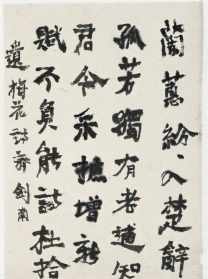 蘭蕙紛〻入楚辭
孤芳獨有老逋知
君今采摭增新
賦不負能詩杜拾
遺 梅花詩齋 劍南